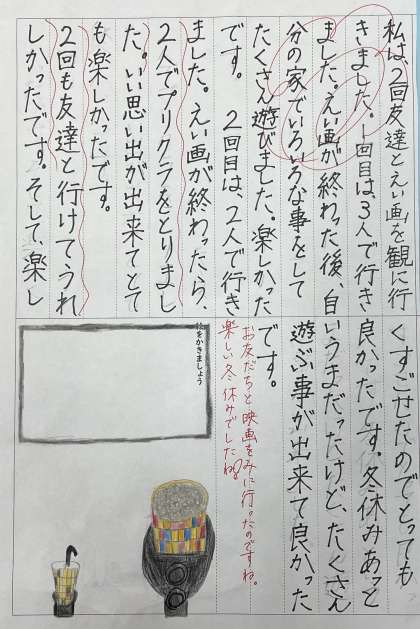 私は、2回友達とえい画を観に行
きました。1回目は、3人で行き
ました。えい画が終わった後、自
分の家でいろいろな事をして
たくさん遊びました。楽しかった
です。　2回目は、2人で行き
ました。えい画が終わったら、
2人でプリクラをとりまし
た。いい思い出が出来てとて
も楽しかったです。
2回も友達と行けて、うれ
しかったです。そして、楽し
くすごせたのでとっても
良かったです。冬休みあっと
いうまだったけど、たくさん
遊ぶ事が出来て良かった
です。
お友だちと映画をみに行ったのですね。
楽しい冬休みでしたね。
絵をかきましょう